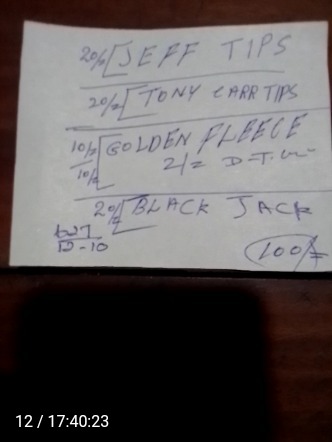 20/- JEFF TIPS
20/- TONY CARR TIPS
10/2 GOLDEN FLEECE
10/2 2/= D-T.W
20/- BLACK JACK
12-10
100/=
12 / 17:40:23